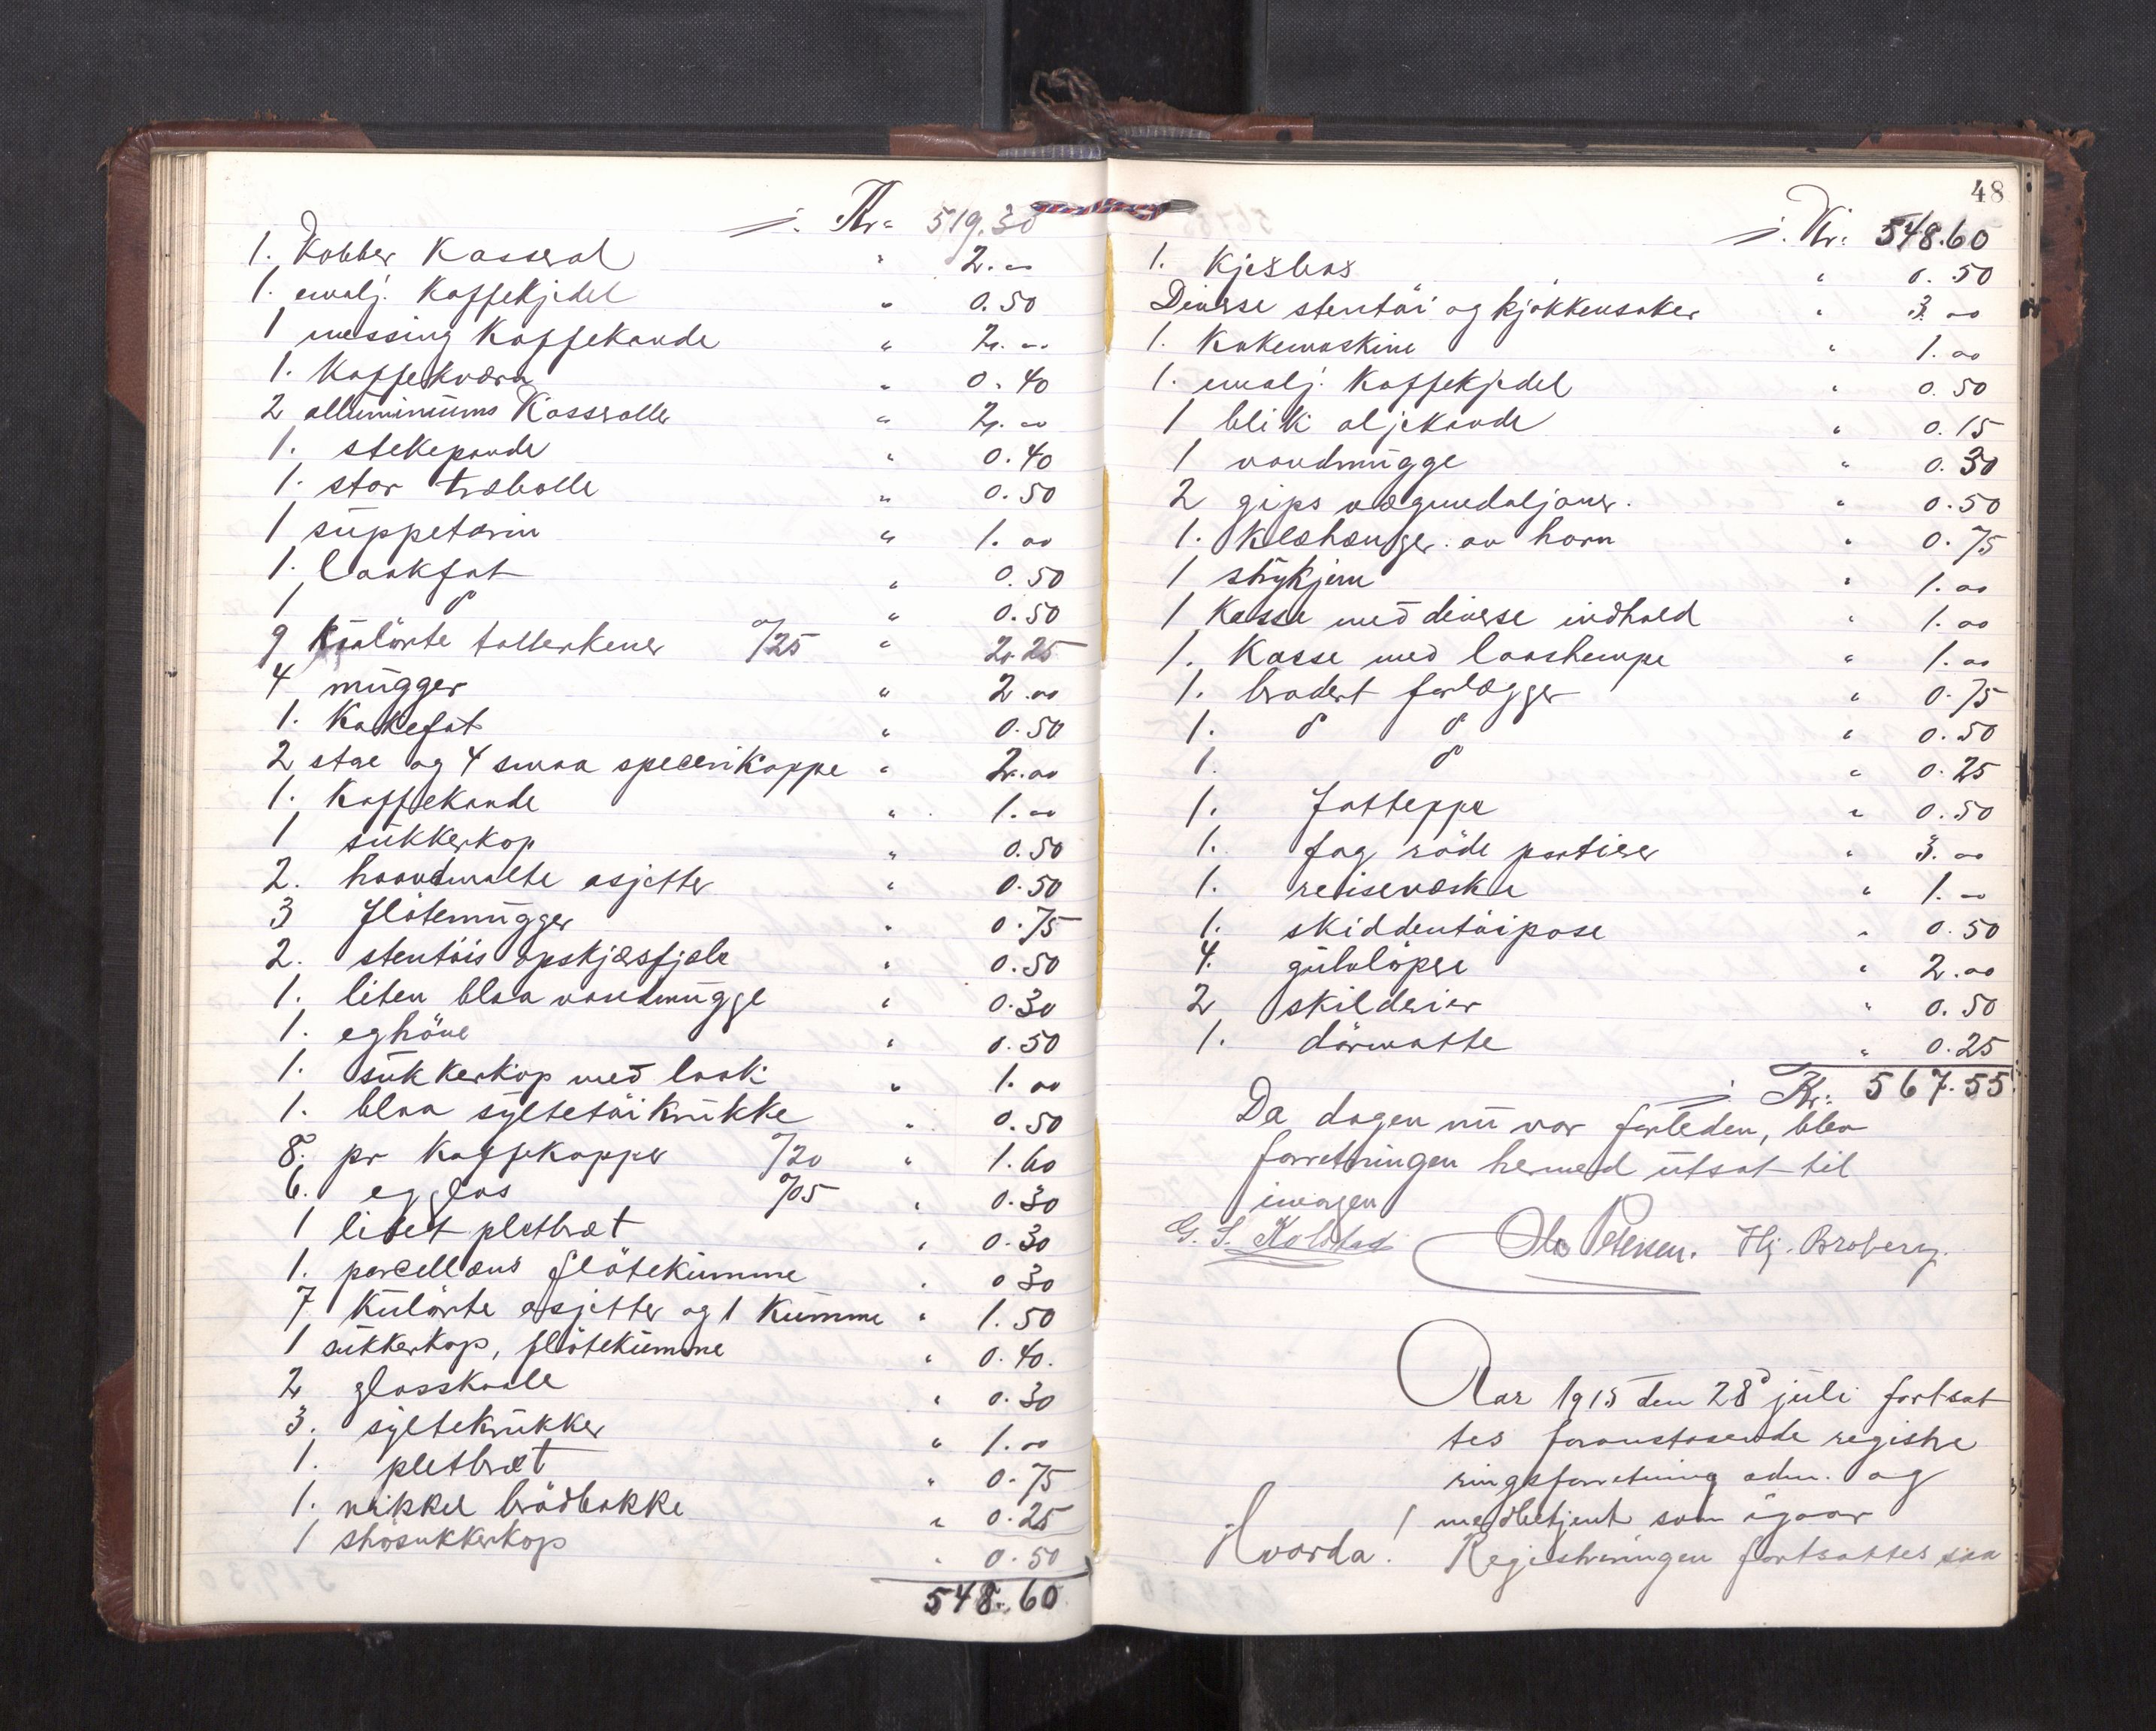 ⸗/. Kr. 519.30
1. Kobber Kasserol " 2.00
1. emalj. Kaffekjedel " 0.50
1 messing Kaffekande " 2.00
1. Kaffekværn " 0.40
2 alluminiums Kasserolle " 2.00
1. stekepande " 0.40
1. stor træbolle " 0.50
1 suppeterin " 1.00
1. laakfat " 0.50
1 do " 0.50
9 kulørte tallerkener a/25 " 2.25
4 mugger " 2.00
1. Kakefat " 0.50
2 stae og 4 smaa specerikoppe " 2.00
1. Kaffekande " 1.00
1 sukkerkop " 0.50
2. haandmalte asjetter " 0.50
3 fløtemugger " 0.75
2. stentøis opskjærsfjæle " 0.50
1. liten blaa vandmugge " 0.30
1. eghøne " 0.50
1. sukkerkop med laak " 1.00
1. blaa syltetøikrukke " 0.50
8. pr Kaffekopper a/20 " 1.60
6. egglas a/05 " 0.30
1 litet pletbræt " 0.30
1. porcellæns fløtekumme " 0 30
7 Kulørte asjetter og 1 Kumme " 1.50
1 sukkerkop, fløtekumme " 0.40.
2 glasskaale " 0.30
3. syltekrukker " 1.00
1. pletbræt " 0.75
1. nikkel brødbakke " 0.25
1 strøsukkerkop " 0.50
548.60
48
⸗/. Kr. 548.60
1. Kjeks " 0.50
Diverse stentøi og kjøkkensaker " 3.00
1. Kokemaskine " 1.00
1. emalj. Kaffekjedel " 0.50
1 blik oljekande " 0.15
1 vandmugge " 0.30
2 gips vægmedaljoner. " 0.50
1. Klæhænger av horn " 0.75
1 strykjern " 1.00
1 Kasse med diverse indhold " 1.00
1. Kasse med laashempe " 1.00
1. brodert forlægger " 0.75
1. do do " 0.50
1. do " 0.25
1. fatteppe " 0.50
1. fag røde portierer " 3.00
1. reisevæske " 1.00
1. skiddentøipose " 0.50
4. gulvløpere " 2.00
2 skilderier " 0.50
1. dørmatte " 0.25
⸗/ Kr. 567.55
Da dagen nu var forleden, blev
forretningen hermed utsat til
imorgen
G. S. Kolstad Ole Petersen. Hj. Broberg.
Aar 1915 den 28de juli fortsat
tes foranstaaende registre
ringsforretning adm. og
medbetjent som igaar
Hvorda! Registreringen fortsattes saa